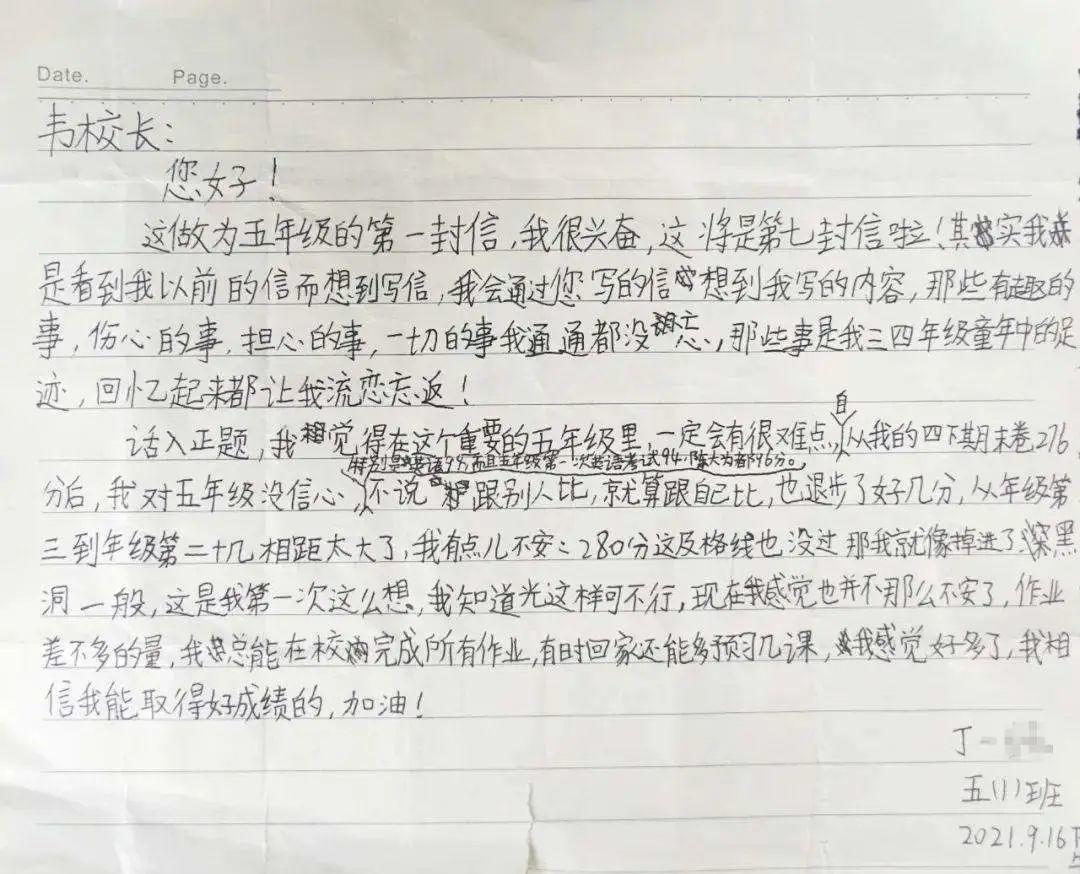 Date. Page.
韦校长：
您好！
这做为五年级的第一封信，我很兴奋，这将是第七封信啦！其实我
是看到我以前的信而想到写信，我会通过您写的信想到我写的内容，那些有趣的
事，伤心的事，担心的事，一切的事我通通都没忘，那些事是我三四年级童年中的足
迹，回忆起来都让我流恋忘返！
自
话入正题，我觉得在这个重要的五年级里，一定会有很难点，从我的四下期末卷276
特别是英语98而且五年级第一次英语考试94，陈大为都96分。
分后，我对五年级没信心，不说跟别人比，就算跟自己比，也退步了好几分，从年级第
三到年级第二十几相距太大了，我有点儿不安：280分这及格线也没过那我就像掉进了深黑
洞一般，这是我第一次这么想，我知道光这样可不行，现在我感觉也并不那么不安了，作业
差不多的量，我总能在校内完成所有作业，有时回家还能多预习几课，我感觉好多了，我相
信我能取得好成绩的，加油！
丁一
五(1)班
2021.9.16下